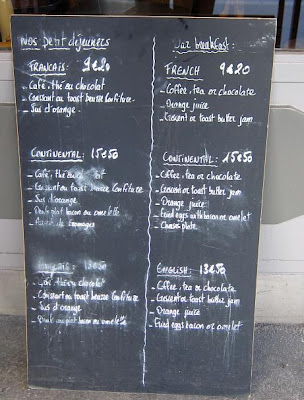 Nos petit déjeuners
FRANCAIS: 9€20
- Café, thé ou chocolat
- Croissant ou toast beurre confiture
- Jus d'orange.
CONTINENTAL: 15€50
- Café, thé
- Croissant ou toast beurre confiture
- Jus d'orange
- bacon ou omelette
- fromages
13€50
- chocolat
- Croissant ou toast beurre confiture
- Jus d'orange
- plat bacon ou omelette
Our breakfast:
FRENCH 9€20
- Coffee, tea or chocolate
- Orange juice
- Crescent or toast butter jam
CONTINENTAL: 15€50
- Coffee, tea or chocolate
- Crescent or toast butter jam
- Orange juice
- Fried eggs with bacon or omelet
- Cheese plate
ENGLISH: 13€50
- Coffee, tea or chocolate
- Crescent or toast butter jam
- Orange juice
- Fried eggs bacon or omelet